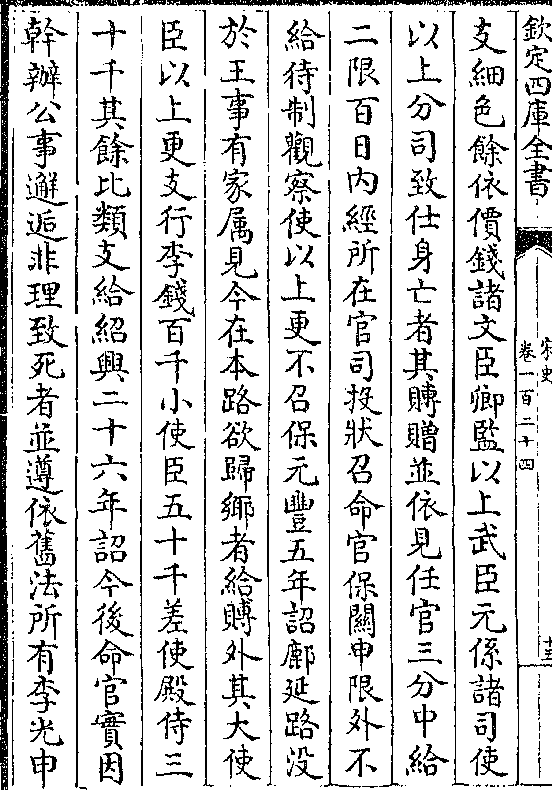 欽定四庫全書
宋史
卷一百二十四
十三
支細色餘依價錢諸文臣卿監以上武臣元係諸司使
以上分司致仕身亡者其賻贈並依見任官三分中給
二限百日内經所在官司投狀召命官保關申限外不
給待制觀察使以上更不召保元豐五年詔鄜延路没
於王事有家属見今在本路欲歸鄉者給賻外其大使
臣以上更支行李錢百千小使臣五十千差使殿侍三
十千其餘比類支給紹興二十六年詔今後命官實因
幹辦公事邂逅非理致死者並遵依舊法所有李光申